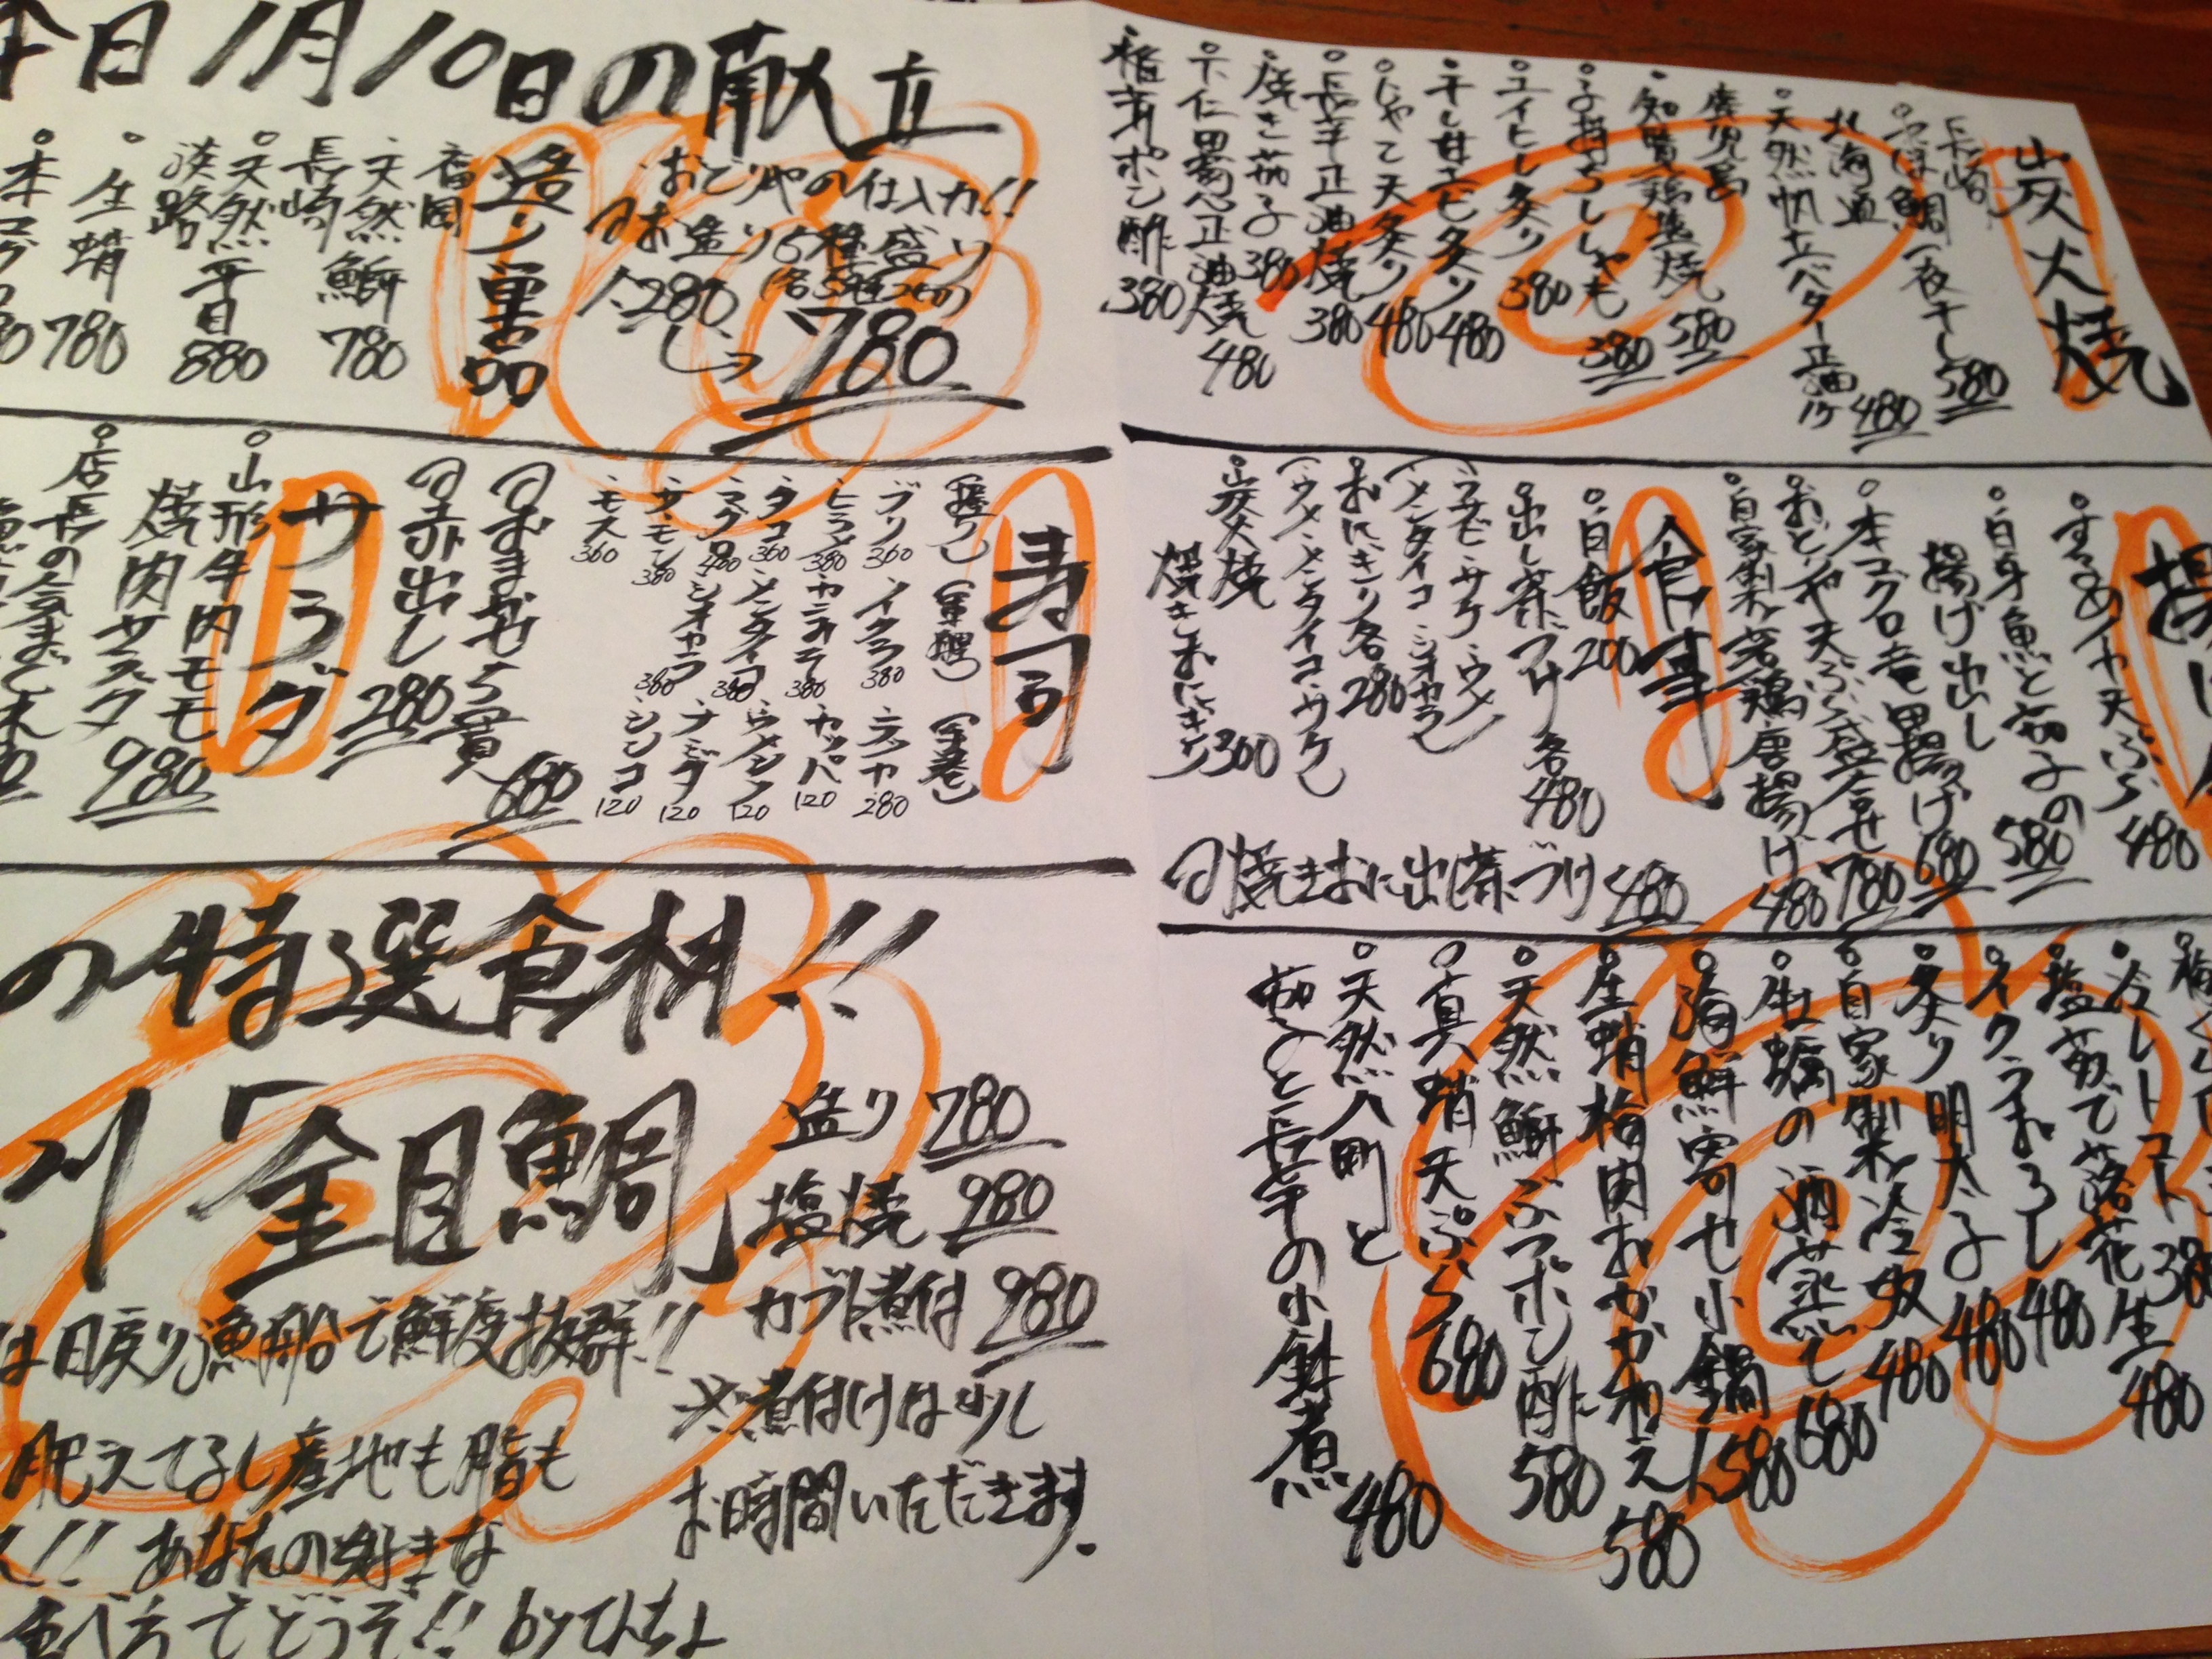 本日1月10日の献立
おどりやの仕入力!!
お造り5種盛り
1,280
(各5種2切)
780
造り単品
福岡
天然鰤 780
長崎
天然平目 880
淡路
生蛸 780
本マグロ
寿司
(握り) (軍艦) (手巻)
ブリ 360 イクラ 380 テッカ 280
ヒラメ 380 カニミソ 380 カッパ 120
タコ 360 メンタイコ 380 ウメシソ 120
マグロ 480 シオカラ 380 ナットウ 120
サーモン 380 シンコ 120
モス 360
おまかせ5貫 680
赤出し 280
サラダ
山形牛肉モモ
焼肉サラダ 980
店長の気まぐれ
の特選食材!!
「金目鯛」
造り 780
塩焼 980
カブト煮付 980
は日戻り漁船で鮮度抜群!!
※煮付けは少し
お時間いただきます.
肥えてるし産地も脂も
!! あなたの好きな
食べ方でどうぞ!! byてんちょ
炭火焼
長崎
つぼ鯛一夜干し 580
北海道
天然帆立バター正油 480
鹿児島
知覧鶏塩焼 580
子持ちししゃも 380
エイヒレ炙り 380
干し甘エビ炙り 480
じゃこ天炙り 480
長芋正油焼 380
焼き茄子 380
下仁田葱正油焼 480
椎茸ポン酢 380
揚げ
するめイヤ天ぷら 480
白身魚と茄子の
揚げ出し 580
本マグロ竜田揚げ 680
おどりや天ぷら盛合せ 780
自家製若鶏唐揚げ 480
食事
白飯 200
出し茶づけ各 480
(ワサビ・サケ・ウメ
メンタイコ・シオカラ)
おにぎり各 280
(ウメ・メンタイコ・サケ)
炭火焼
焼きおにぎり 300
焼きおに出し茶づけ 480
冷しトマト 380
塩茹で落花生 480
イクラおろし 480
炙り明太子 480
自家製冷奴 480
牡蠣の酒蒸し 680
海鮮寄せ小鍋 1,580
生蛸梅肉おかか和え 580
天然鰤しゃぶポン酢 580
真蛸天ぷら 680
天然鰤と
茄子と長芋の小鉢煮 480